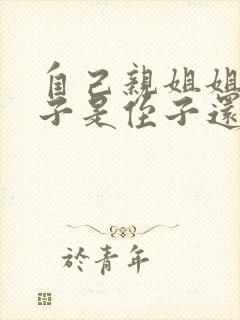 自己親姐姐
子是侄子還
於青年